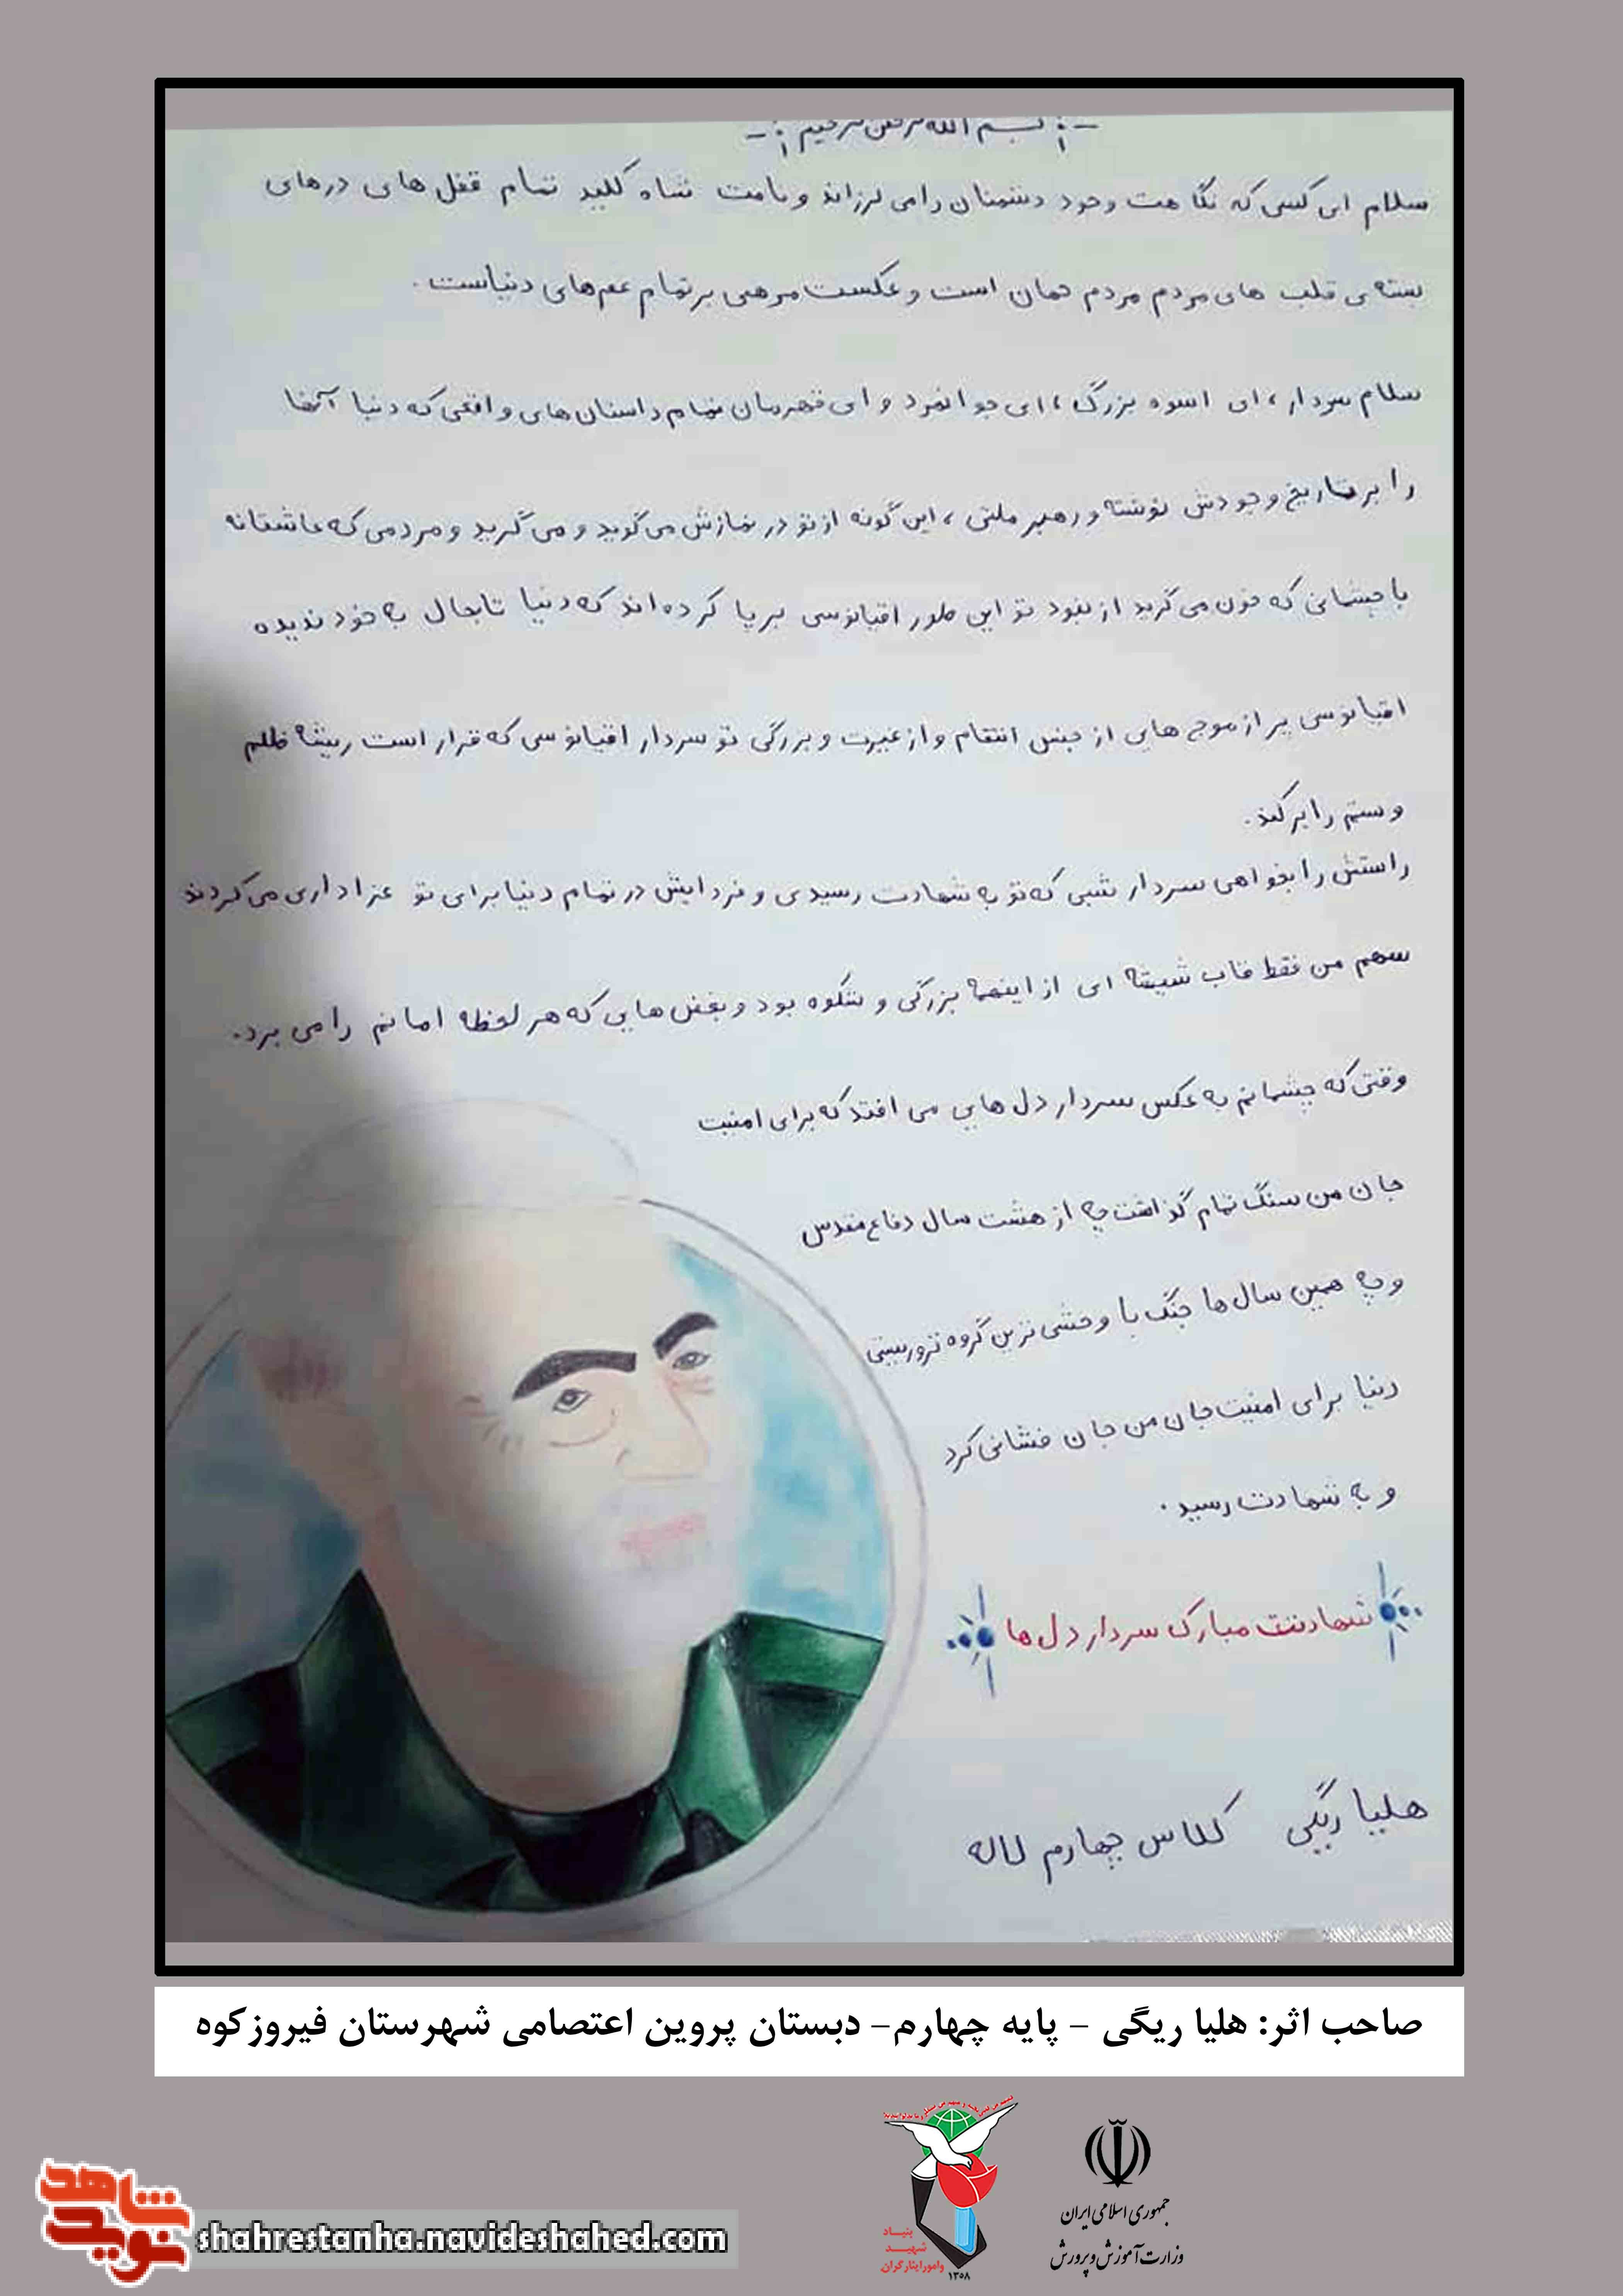 بسم الله الرحمن الرحیم
سلام ای کسی که نگاهت وجود دشمنان را می لرزاند و نامت شاه کلید تمام قفل های درهای
بسته ی قلب های مردم مردم جهان است و عکست مرهمی بر تمام غم های دنیاست.
سلام سردار، ای اسوه بزرگ، ای جوانمرد و ای قهرمان تمام داستان های واقعی که دنیا آنها
را بر تاریخ وجودش نوشته و رهبر ملتی، این گونه از تو در نمازش می گوید و می گرید و مردمی که عاشقانه
با چشمانی که خون می گرید از نبود تو این طور اقیانوسی بر پا کرده اند که دنیا تا بحال به خود ندیده
اقیانوسی پر از موج هایی از جنس انتقام و از غیرت و بزرگی تو سردار اقیانوسی که قرار است ریشه ظلم
و ستم را بر کند.
راستش را بخواهی سردار شبی که تو به شهادت رسیدی و فردایش در تمام دنیا برای تو عزاداری می کردند
سهم من فقط قاب شیشه ای از اینهمه بزرگی و شکوه بود و بغض هایی که هر لحظه امانم را می برد.
وقتی که چشمانم به عکس سردار دل هایی می افتد که برای امنیت
جان من سنگ تمام گذاشت چه از هشت سال دفاع مقدس
و چه همین سال ها جنگ با وحشی ترین گروه تروریستی
دنیا برای امنیت جان من جان فشانی کرد
و به شهادت رسید.
شهادتت مبارک سردار دل ها
هلیا ریگی کلاس چهارم لاله
صاحب اثر: هلیا ریگی - پایه چهارم- دبستان پروین اعتصامی شهرستان فیروزکوه
جمهوری اسلامی ایران
وزارت آموزش و پرورش
بنیاد
شهید
و امور ایثارگران
۱۳۵۸
نوید شاهد
shahrestanha.navideshahed.com